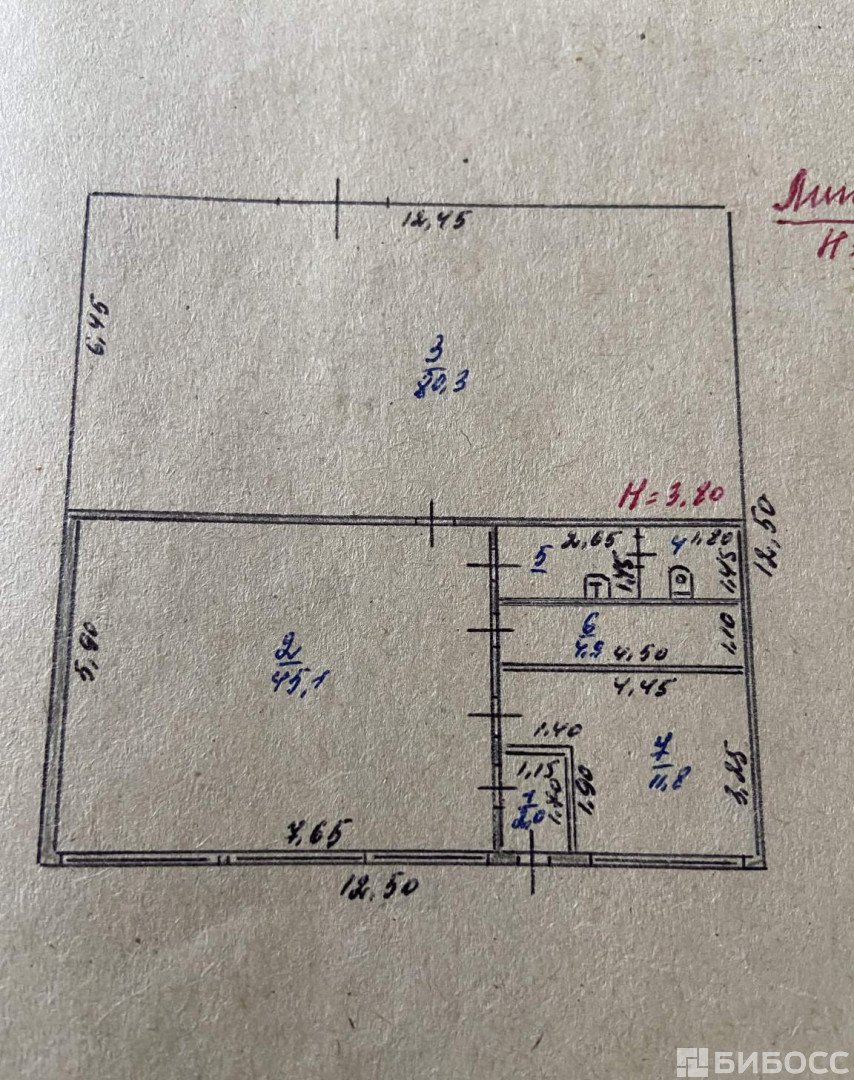 Лит
Н=
12,45
6,45
3
80,3
Н=3,80
12,50
5
2,65
4
1,80
1,45
1,45
6
4,9
4,50
1,10
2
45,1
5,90
4,45
1,40
7
11,8
3,25
1,15
1,70
1,90
1
2,0
7,65
12,50
БИБОСС